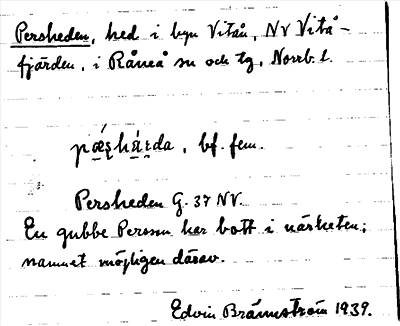 Persheden, hed i byn Vitån, NV Vitå-
fjärden, i Råneå sn och tg, Norrb. l.
bf. fem.
Persheden G. 37 NV.
En gubbe Persson har bott i närheten;
namnet möjligen därav.
Edvin Brännström 1939.